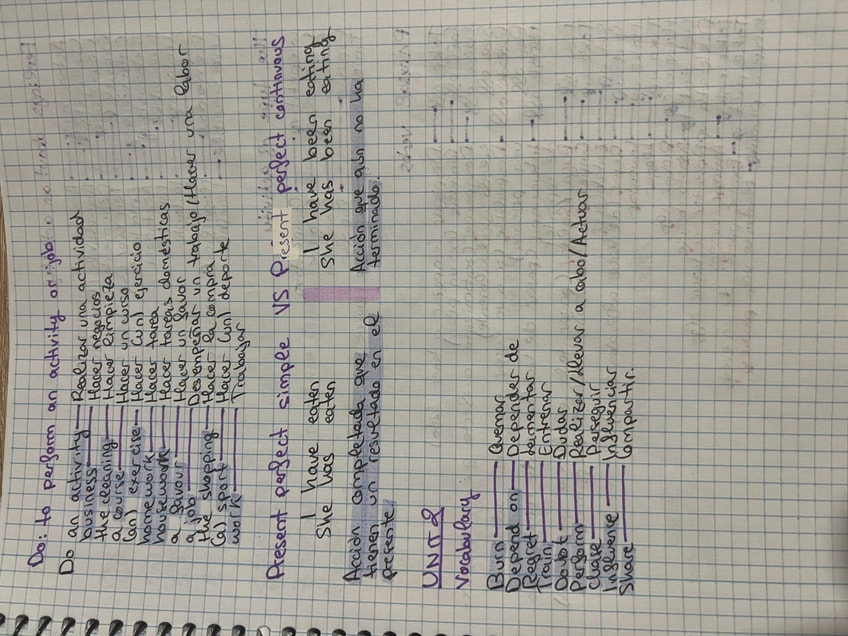 Do: to perform an activity or job
Do an activity — Realizar una actividad
business — Hacer negocios
the cleaning — Hacer limpieza
a course — Hacer un curso
(an) exercise — Hacer (un) ejercicio
homework — Hacer tarea
housework — Hacer tareas domésticas
a favour — Hacer un favor
a job — Desempeñar un trabajo/Hacer una labor
the shopping — Hacer la compra
(a) sport — Hacer (un) deporte
work — Trabajar
Present perfect simple VS Present perfect continuous
I have eaten
She has eaten
I have been eating
She has been eating
Acción completada que
tienen un resultado en el
presente.
Acción que aún no ha
terminado.
UNIT 2
Vocabulary
Burn — Quemar
Depend on — Depender de
Regret — Lamentar
Train — Entrenar
Doubt — Dudar
Perform — Realizar/Llevar a cabo/Actuar
Chase — Perseguir
Influence — Influenciar
Share — Compartir.